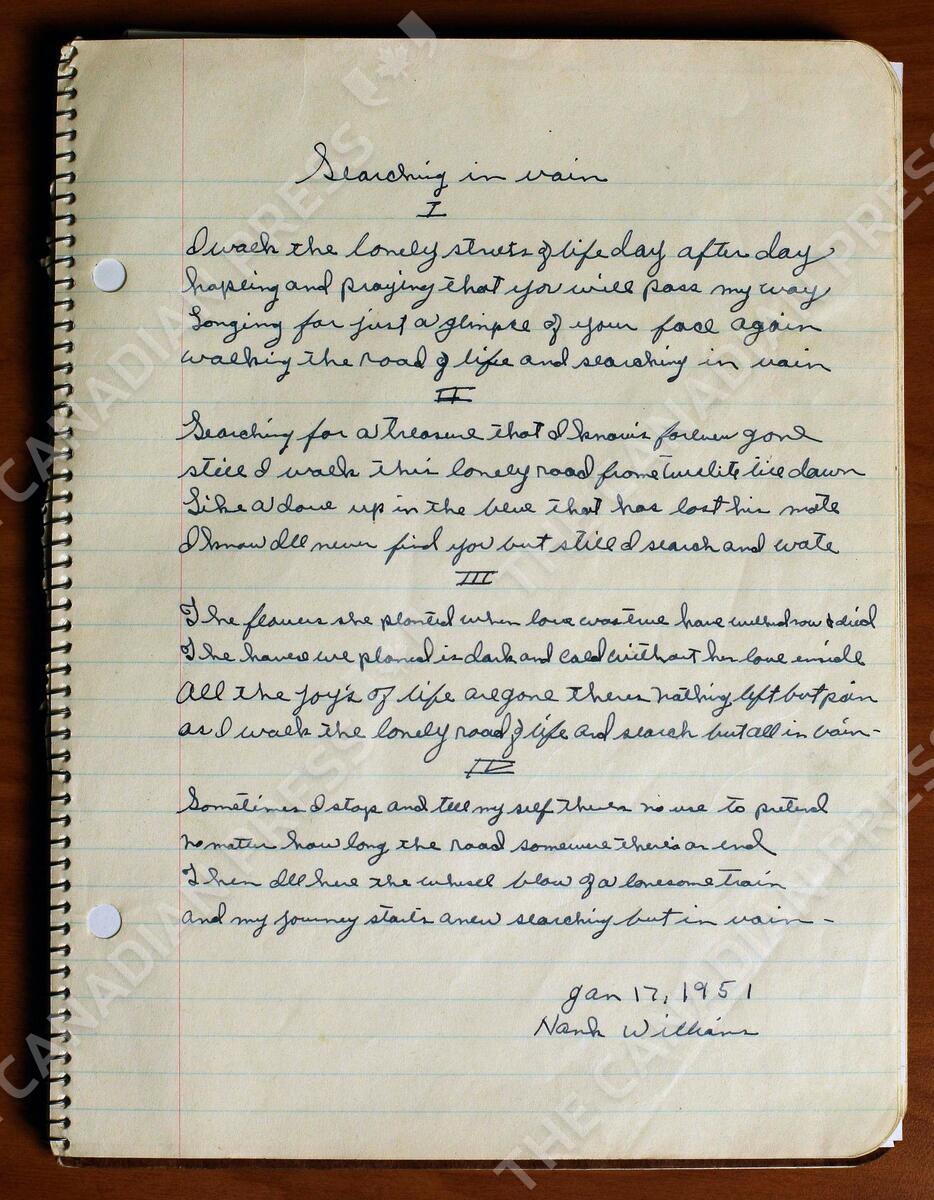 Searching in vain
I
I walk the lonely streets of life day after day
hopeing and praying that you will pass my way
Longing for just a glimpse of your face again
walking the road of life and searching in vain
II
Searching for a treasure that I know is forever gone
still I walk this lonely road frome twilite till dawn
Like a dove up in the blue that has lost his mate
I know Ill never find you but still I search and wate
III
The flowers she planted when love was true have withed now & died
The house we planed is dark and cold without her love inside
All the joy's of life are gone theres nothing left but pain
as I walk the lonely road of life and search but all in vain -
IV
Sometimes I stop and tell my self theres no use to pretend
no mater how long the road somewere there's an end
Then Ill here the whisel blow of a lonesome train
and my journey starts anew searching but in vain -
Jan 17, 1951
Hank Williams
THE CANADIAN PRESS